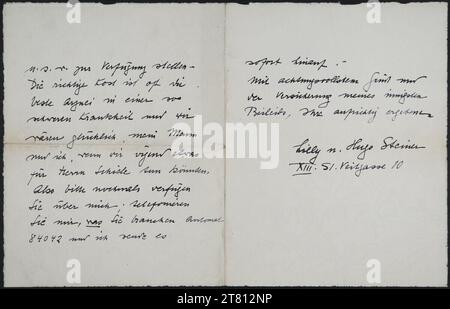 u.s.w. zur Verfügung stellen –
Die richtige Kost ist oft die
beste Arznei in einer so
schweren Krankheit und wir
wären glücklich, mein Mann
und ich, wenn wir irgend etwas
für Herrn Schiele tun könnten.
Also bitte nochmals verfügen
Sie über mich, telefonieren
Sie mir, was Sie brauchen Automat
84042 und ich sende es
sofort hinauf. –
Mit achtungsvollstem Gruß und
der Versicherung meines innigsten
Beileids, Ihre aufrichtig ergebene
Lilly u. Hugo Steiner
XIII. St. Veitgasse 10
alamy
Image ID: 2T812NP
www.alamy.com